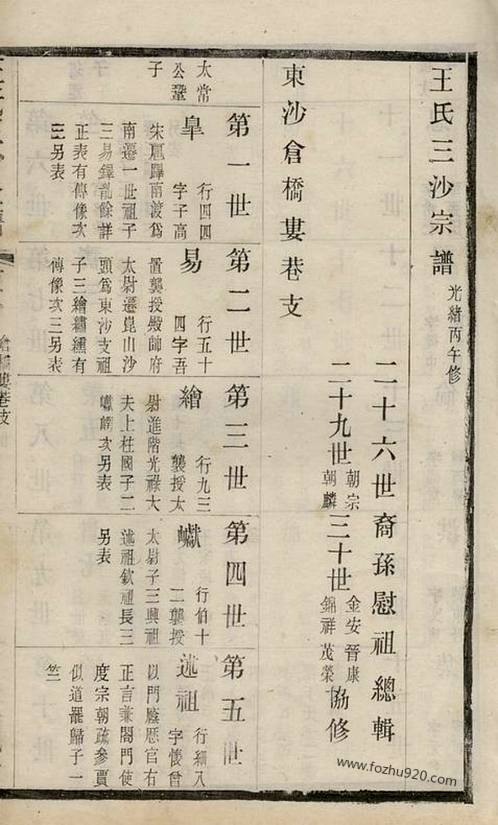 王氏三沙宗譜 光緒丙午修
二十六世裔孫慰祖總輯
二十九世 朝宗 朝麟 三十世 金安 晉康 錦祥 茂榮 協修
東沙倉橋婁巷支
第一世
第二世
第三世
第四世
第五世
太常
公鞏
子
皐 行四四
字子高
朱扈蹕南渡爲
南遷一世祖子
三易鐸亂餘詳
正表有傳像次
三另表
易 行五十
四字吾
置襲授殿帥府
太尉遷崑山沙
頭爲東沙支祖
子三繪繡纁有
傳像次三另表
繪 行九三
襲授太
尉進階光祿大
夫上柱國子二
次另表
行伯十
二襲授
太尉子三興祖
述祖欽祖長三
另表
述祖 行細八
字懷曾
以門廕歷官右
正言兼閣門使
度宗朝疏參賈
似道罷歸子一
竺
倉橋婁巷支
www.fozhu920.com